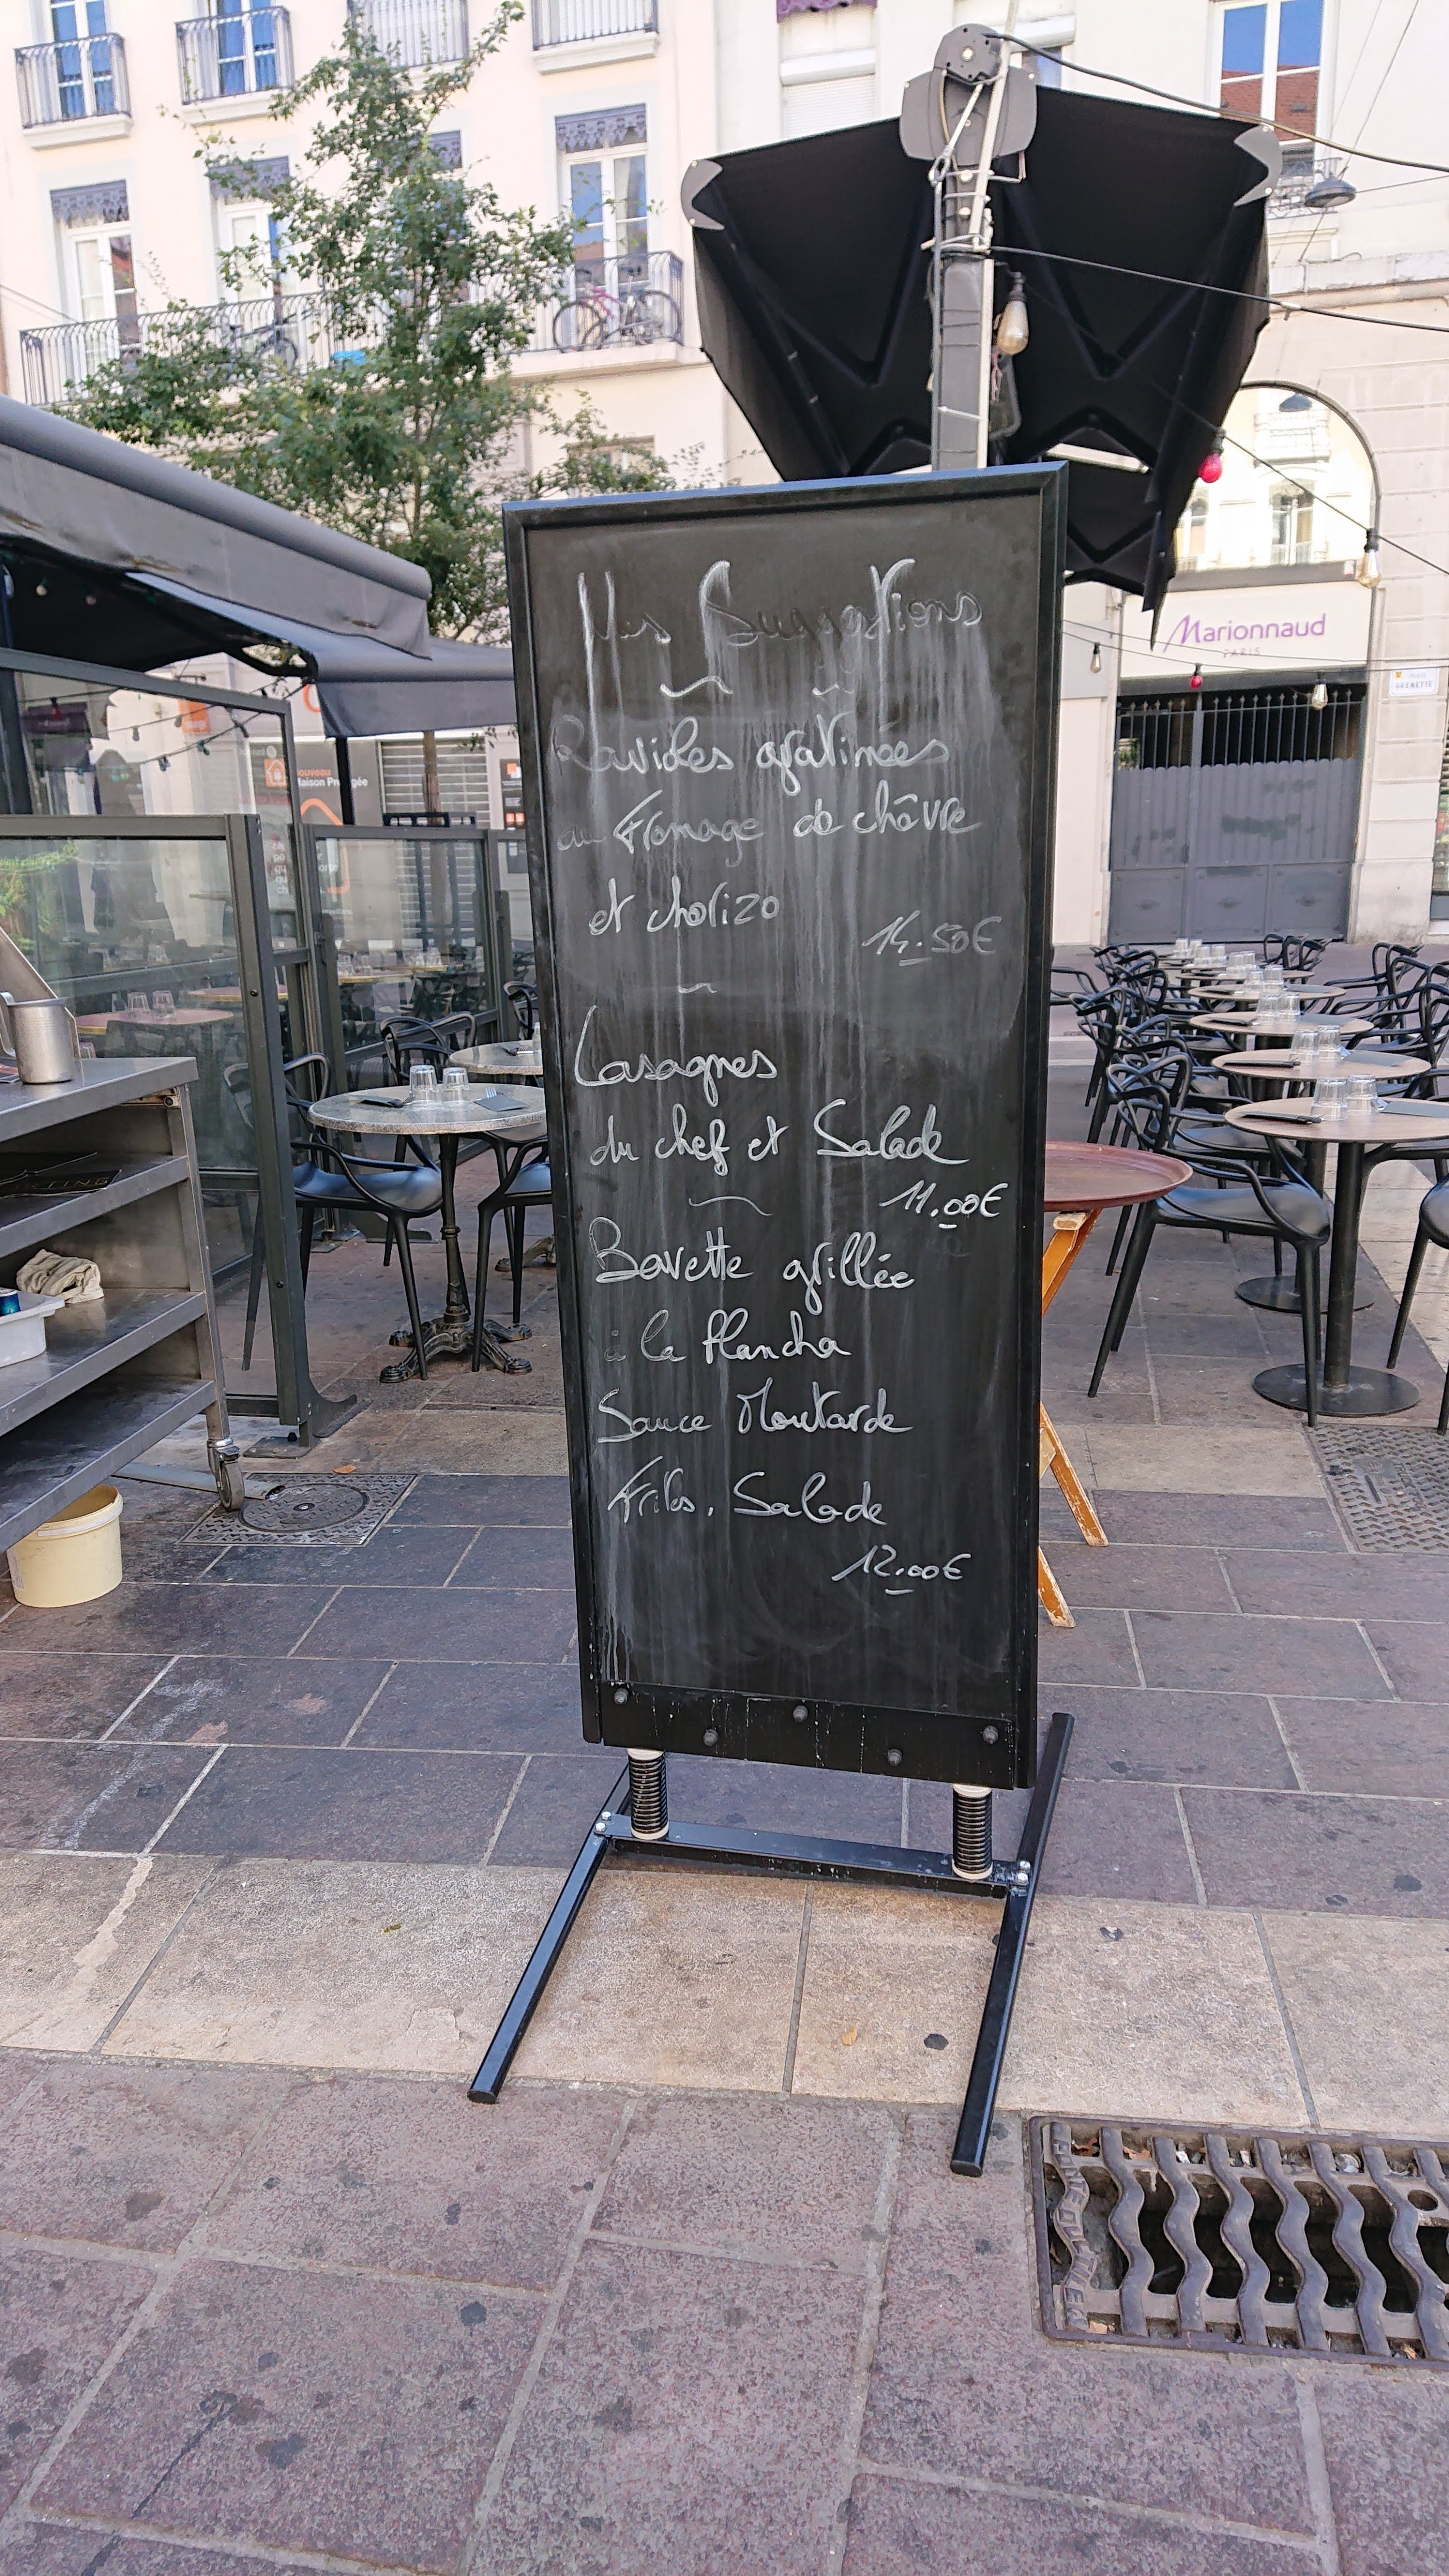 Nos Suggestions
Ravioles gratinées
au Fromage de chèvre
et chorizo
14.50€
Lasagnes
du chef et Salade
11.00€
Bavette grillée
à la Plancha
Sauce Moutarde
Frites, Salade
12.00€
Marionnaud
PARIS
PLACE
GRENETTE
nouveau
Maison Protégée